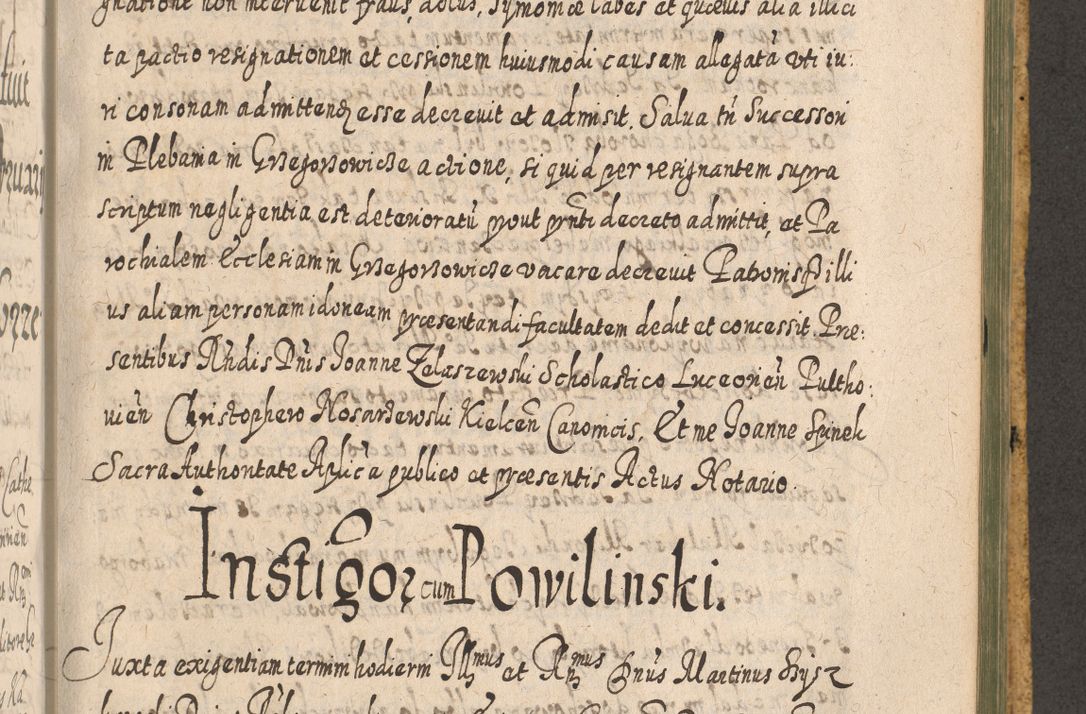 gnatione non interuenit fraus, dolus, symoniæ labes et quæuis alia illici
ta pactio resignationem et cessionem huiusmodi causam allegata vti iu-
ri consonam admittendam esse decreuit et admisit. Salua tñ Successori
in Plebania in Grzegorzowicze actione, si quid per resignantem supra
scriptum negligentia est deterioratũ prout pñti decreto admittit, et Pa
rochialem Ecclesiam in Grzegorzowicze vacare decreuit Patronisq illi
us aliam personam idoneam præsentandi facultatem dedit et concessit. Præ:
sentibus Rñdis Dñis Joanne Zelaszewski Scholastico Luceorieñ Pultho:
uieñ Christophero Nosarzewski Kielceñ Canonicis. Et me Joanne Spinek
Sacra Authoritate Aplica publico et præsentis Actus Notario.
Instigor cum Powilinski.
Juxta exigentiam termini hodierni Illmus et Rmus Dnus Martinus Szysz